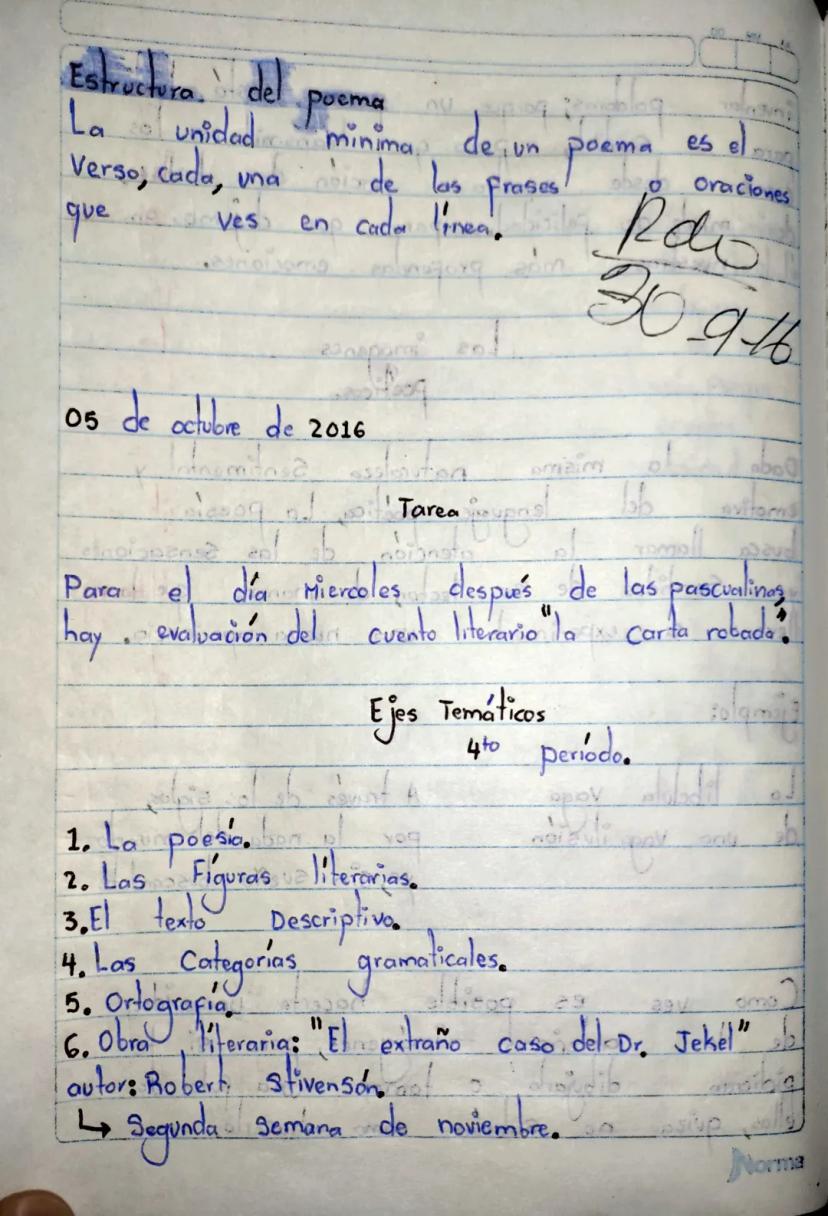 Estructura del poema
La unidad mínima de un poema es el
verso, cada, una de las frases o oraciones
que ves en cada línea.
Rdo
30-9-16
05 de octubre de 2016
Tarea
Para el día Miercoles después de las pascualinas,
hay evaluación del cuento literario "la carta robada".
Ejes Temáticos
4to período.
1. La poesía.
2. Las Figuras literarias.
3. El texto Descriptivo.
4. Las Categorías gramaticales.
5. Ortografía.
6. Obra literaria: "El extraño caso del Dr. Jekel"
autor: Robert Stivensón.
↳ Segunda semana de noviembre.
Norma